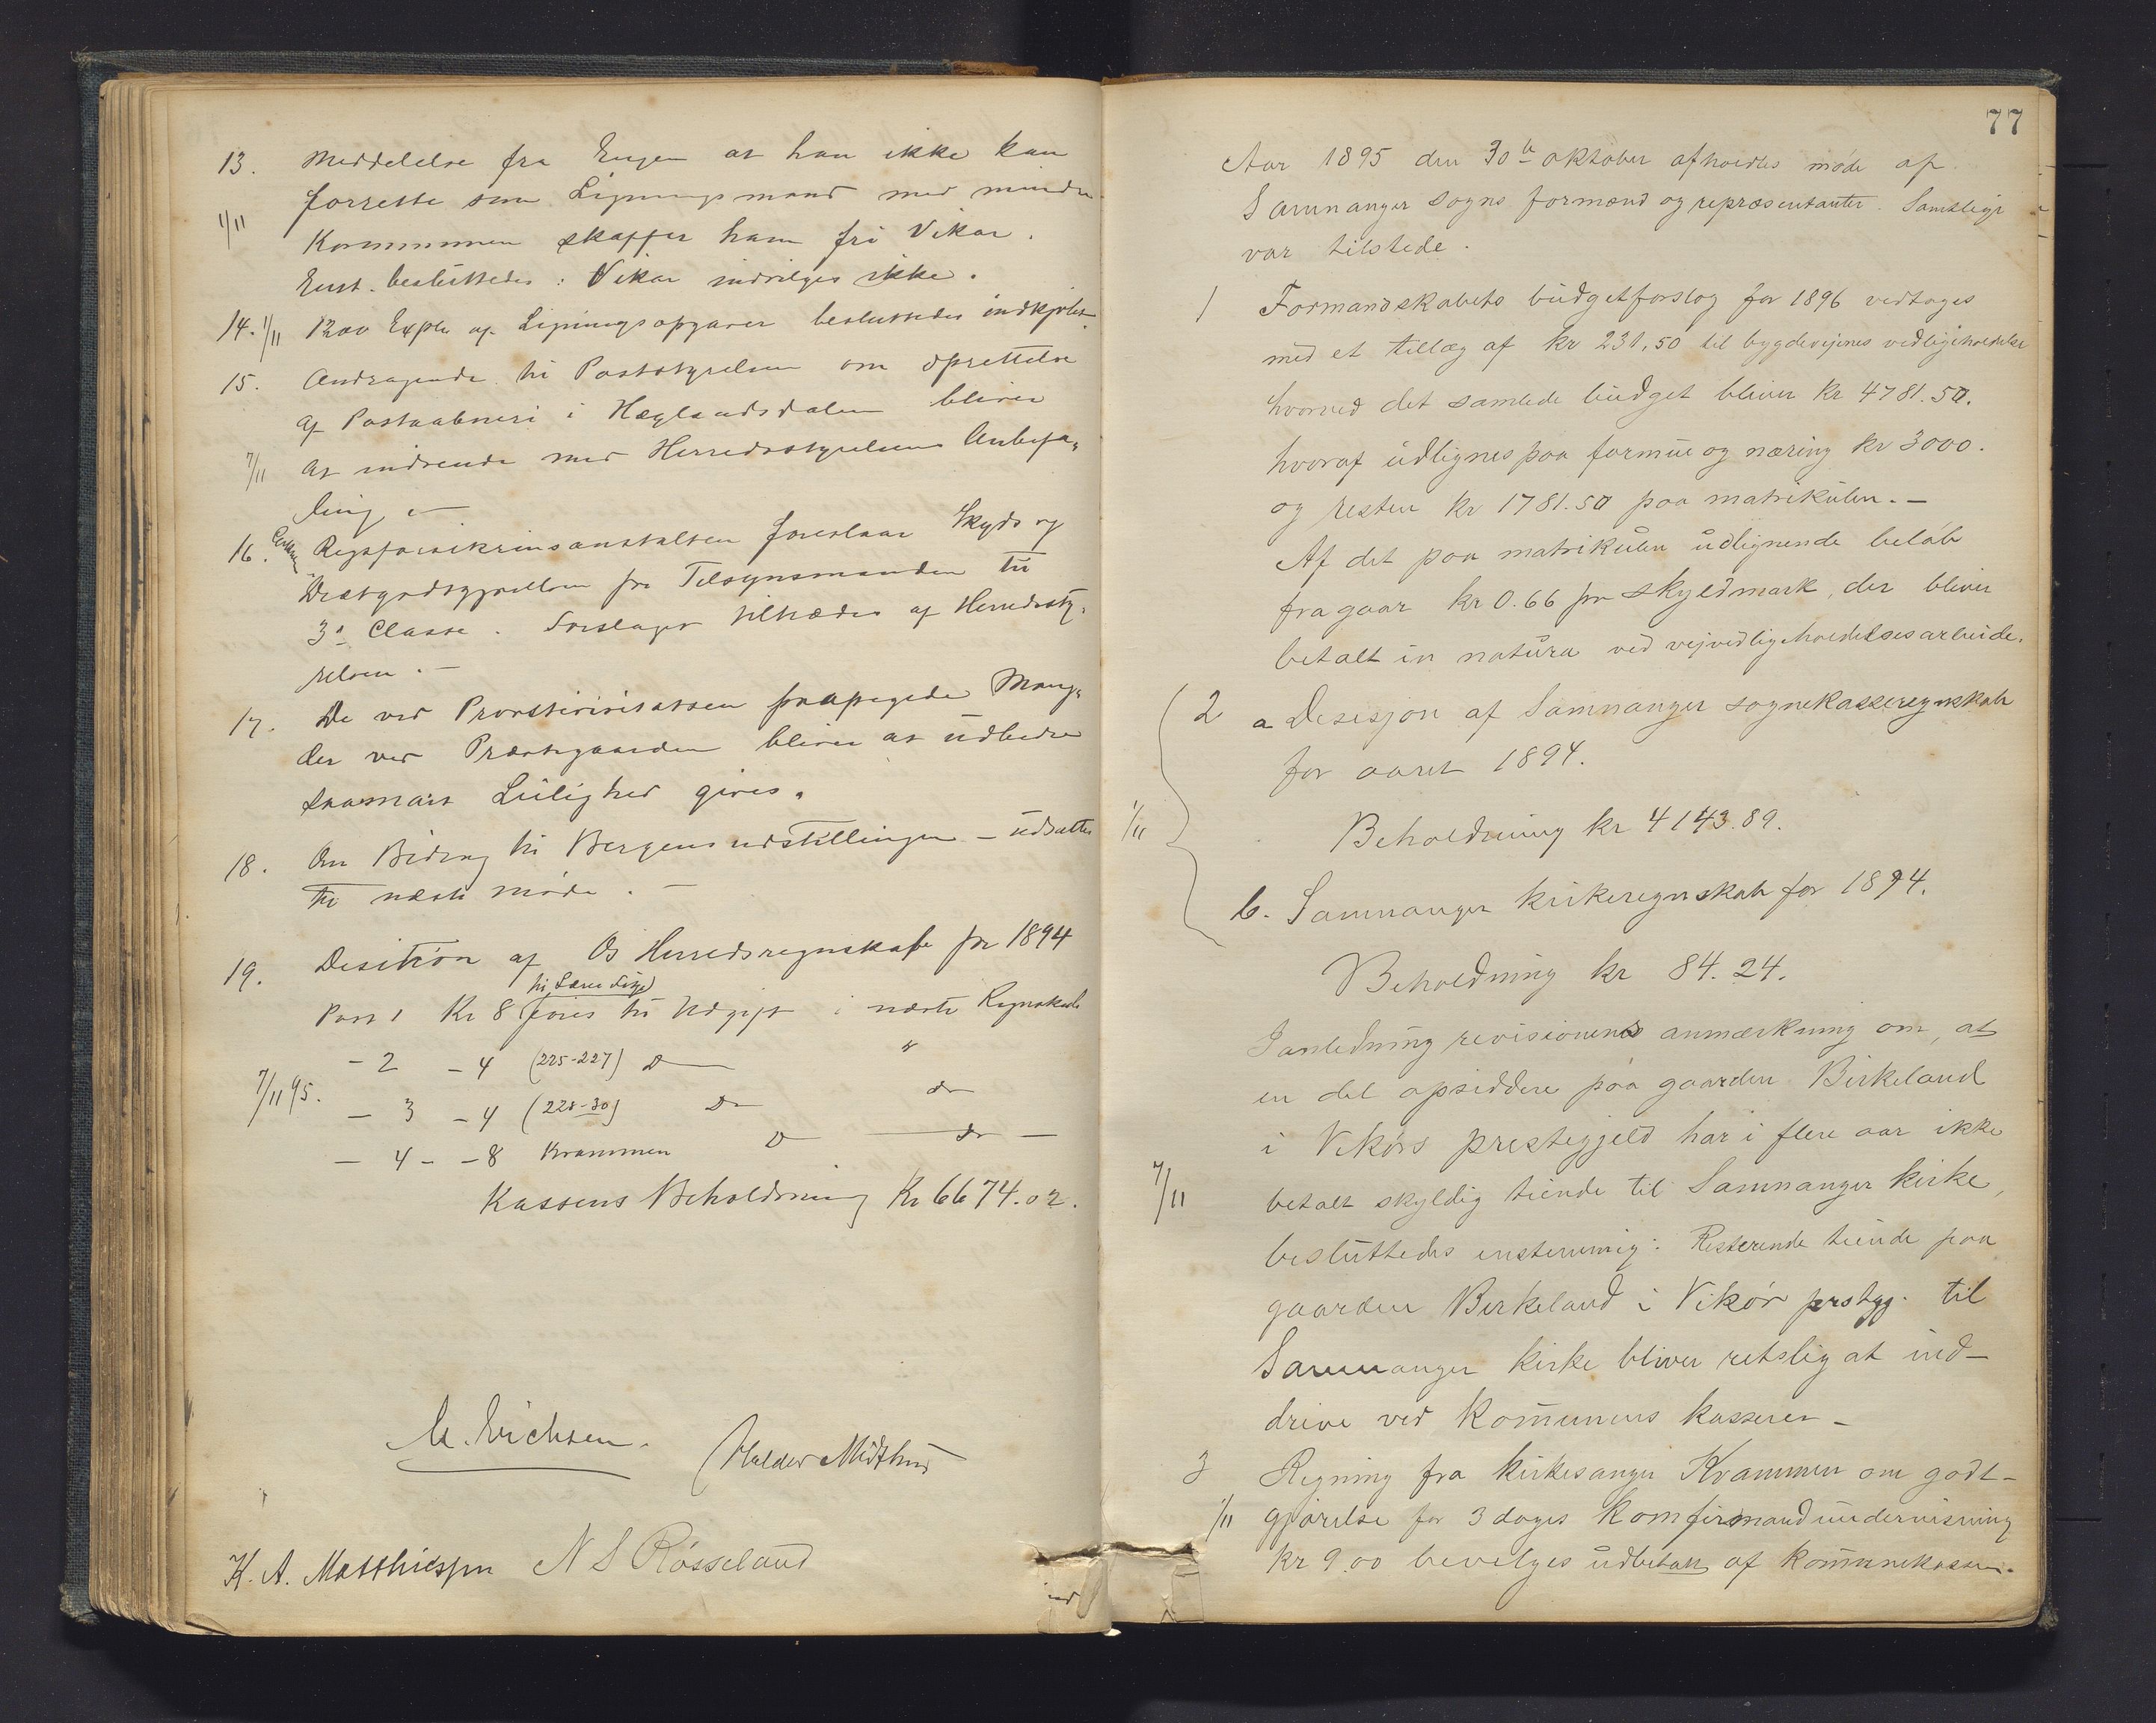 13. Meddelelse fra Engen at han ikke kan
forrette som Ligningsmand med mindre
1/11
Kommunen skaffer ham fri Vikar.
Enst. besluttedes: Vikar indvilges ikke.
14. 1/11 1200 Expl. af Ligningsopgaver besluttedes indkjøbt.
15. Andragende til Poststyrelsen om oprettelse
af Postaabneri i Hæglandsdalen bliver
7/11 at indsende med Herredsstyrelsens Anbefa-
ling.
16. Rigsforsikrinsanstalten foreslaar Skyds og
Diætgodtgjørelsen for Tilsynsmanden til
3die Classe. Forslaget tiltrædes af Herredssty-
relsen. —
17. De ved Provstivisitatsen paapegede Mang-
ler ved Præstegaarden bliver at udbedre
saasnart Leilighed gives.
18. Om Bidrag til Bergensudstillingen – udsættes
til næste møde. —
19. Desition af Os Herredsregnskab for 1894
til Lærer
Post 1 Kr 8 føres til Udgift i næste Regnskab
- 2 - 4 (225-227) Do "
7/11 95.
- 3 - 4 (228-30) Do do
- 4 - - 8 Krammen Do do —
Kassens Beholdning Kr 6674.02.
Erichsen.
Haldor Midthus
K. A. Matthiessen N S Røsseland
77
Aar 1895 den 30te oktober afholdtes møde af
Samnanger sogns formænd og repræsentanter. Samtlige
var tilstede.
1 Formandskabets budgetforslag for 1896 vedtoges
med et tillæg af kr 231,50 til bygdeveienes vedligeholdelse
hvorved det samlede budget bliver kr 4781.50.
hvoraf udlignes paa formue og næring kr 3000.
og resten kr 1781.50 paa matrikulen. —
Af det paa matrikulen udlignende beløb
fragaar kr 0.66 pr skyldmark, der bliver
betalt in natura ved vejvedligeholdelsesarbeide.
2 a Desisjon af Samnanger sognekasseregnskab
for aaret 1894.
1/11
Beholdning kr 4143.89.
b. Samnanger kirkeregnskab for 1894.
Beholdning kr 84.24.
I anledning revisionens anmærkning om, at
en del opsiddere paa gaarden Birkeland
i Vikørs prestegjeld har i flere aar ikke
7/11
betalt skyldig tiende til Samnanger kirke,
besluttedes enstemmig: Resterende tiende paa
gaarden Birkeland i Vikør prstgj. til
Samnanger kirke bliver retslig at ind-
drive ved kommunens kasserer –
3 Regning fra kirkesanger Kvammen om godt-
1/11 gjørelse for 3 dages komfirmandundervisning
kr 9.00 bevilges udbetalt af kommunekassen.